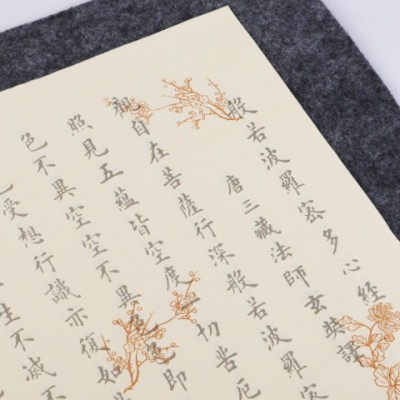 般若波羅密多心經
唐三藏法師玄奘譯
觀自在菩薩行深般若波羅密
照見五蘊皆空度一切苦厄
色不異空空不異色色即
受想行識亦復如
生不滅不